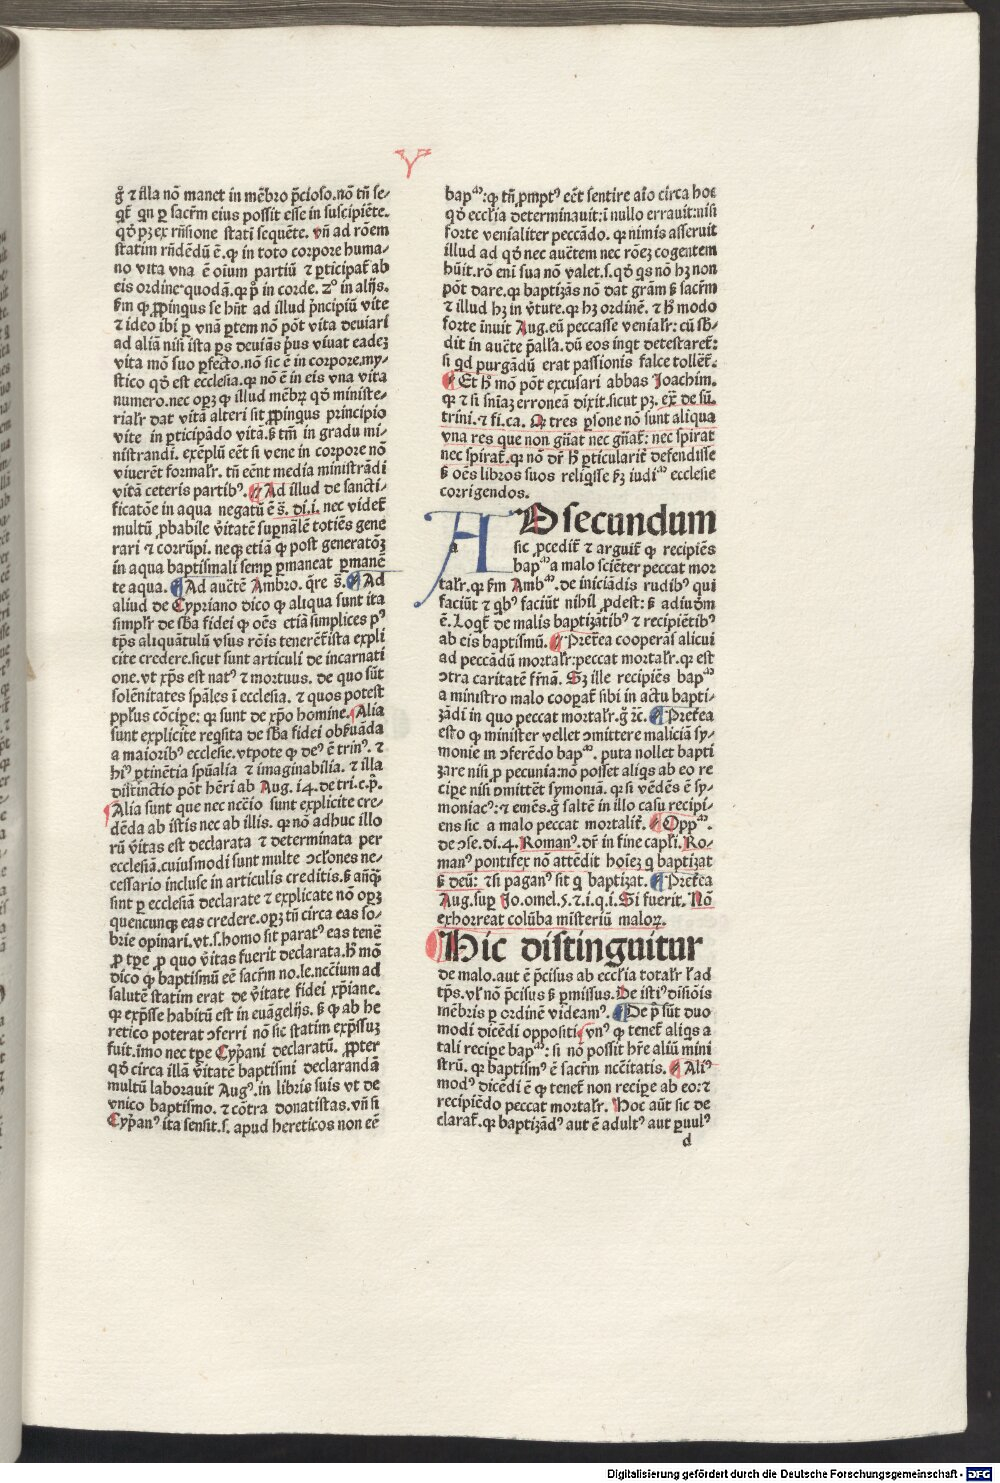 V
g̊ ⁊ illa nō manet in mēbro p̄cioso.nō tn̄ se-
qt̄ qn ꝑ sacr̄m eius possit esse in suscipiēte.
qď pꝫ ex rn̄sione stati sequēte. vn̄ ad rōem
statim rn̄dēdū ē.ꝙ in toto corpore huma-
no vita vna ē oīum partiū ⁊ ꝑticipat̄ ab
eis ordine quodā.qꝛ p̄ in corde. 2° in alijs.
ẜm ꝙ ꝓpinqus se hn̄t ad illud p̄ncipiū vite
⁊ ideo ibi ꝑ vnā ꝑtem nō pōt vita deuiari
ad aliā nisi ista ꝑs deuiās p̄us viuat eadeꝫ
vita mō suo ꝑfecto.nō sic ē in corpore.my-
stico qď est ecclesia.qꝛ nō ē in eis vna vita
numero.nec opꝫ ꝙ illud mēbꝝ qď ministe-
rialr̄ dat vitā alteri sit ꝓpinqus principio
vite in ꝑticipādo vitā.ẞ tm̄ in gradu mi-
nistrandi. exēplū eēt si vene in corpore nō
viuerēt formalr̄. tn̄ eēnt media ministrādi
vitā ceteris partibꝰ. Ad illud de sancti-
ficatōe in aqua negatū ē s̄. di.i. nec videt̄
multū ꝓbabile v̄itatē suꝑnālē totiēs gene
rari ⁊ corrūpi. neqꝫ etiā ꝙ post generatōꝫ
in aqua baptismali semꝑ ꝑmaneat ꝑmanē
te aqua. Ad auctē Ambro. q̄re s̄. Ad
aliud de Cypriano dico ꝙ aliqua sunt ita
simplr̄ de sb̄a fidei ꝙ oēs etiā simplices pꝰ
tp̄s aliquātulū vsus rōis tenerēt̄ ista expli
cite credere.sicut sunt articuli de incarnati
one.vt xp̄s est natꝰ ⁊ mortuus. de quo sūt
solēnitates sp̄ales ī ecclesia. ⁊ quos potest
pp̄lus cōcipe: qꝛ sunt de xp̄o homine. Alia
sunt explicite reqsita de sb̄a fidei obẜuāda
a maioribꝰ ecclesie.vtpote ꝙ deꝰ ē trinꝰ. ⁊
hiꝰ ꝑtinētia spūalia ⁊ imaginabilia. ⁊ illa
distinctio pōt hēri ab Aug. i4. de tri.c.p̄.
Alia sunt que nec nc̄cio sunt explicite cre-
dēda ab istis nec ab illis. qꝛ nō adhuc illo
rū v̄itas est declarata ⁊ determinata per
ecclesiā.cuiusmodi sunt multe ɔclōnes ne-
cessario incluse in articulis creditis.ẞ anq̄ꝫ
sint ꝑ ecclesiā declarate ⁊ explicate nō opꝫ
quencunqꝫ eas credere.opꝫ tn̄ circa eas so-
brie opinari.vt.s.homo sit paratꝰ eas tenē
ꝓ tꝑe ꝓ quo v̄itas fuerit declarata.h̄ mō
dico ꝙ baptismū eē sacr̄m no.le.nc̄cium ad
salutē statim erat de v̄itate fidei xp̄iane.
qꝛ exp̄sse habitū est in euāgelijs. ẞ ꝙ ab he
retico poterat ɔferri nō sic statim exp̄ssuꝫ
fuit.imo nec tꝑe Cyp̄ani declaratū. ꝓpter
qď circa illā v̄itatē baptismi declarandā
multū laborauit Augꝰ. in libris suis vt de
vnico baptismo. ⁊ cōtra donatistas. vn̄ si
Cyp̄anꝰ ita sensit.s. apud hereticos non eē
bapᵐ: ꝙ tn̄ ꝓmptꝰ eēt sentire aīo circa hoc
qď eccl̄ia determinauit: ī nullo errauit: nisi
forte venialiter peccādo. qꝛ nimis asseruit
illud ad qď nec auctem nec rōeꝫ cogentem
hūit. rō eni sua nō valet. s. qď qs nō hꝫ non
pōt dare. qꝛ baptizās nō dat grām ẞ sacr̄m
⁊ illud hꝫ in v̄tute. qꝛ hꝫ ordinē. ⁊ h̄ modo
forte īnuit Aug. eū peccasse venialr̄: cū sb̄-
dit in aucte p̄alla. dū eos inqt detestaret̄:
si qd purgādū erat passionis falce tollēt̄.
Et h̄ mō pōt excusari abbas Joachim.
qꝛ ⁊ si sniaꝫ erroneā dixit. sicut pꝫ. ex̄ de sū.
trini. ⁊ fi. ca. Qꝛ tres ꝑsone nō sunt aliqua
vna res que non gn̄at nec gn̄at̄: nec spirat
nec spirat̄. qꝛ nō dr̄ h̄ ꝑticularit̄ defendisse
ẞ oēs libros suos reliqsse ẜꝫ iudiᵐ ecclesie
corrigendos.
AD secundum
a
sic ꝓcedit̄ ⁊ arguit̄ ꝙ recipiēs
bapᵐ a malo sciēter peccat mor
talr̄. qꝛ ẜm Ambᵐ. de iniciādis rudibꝰ qui
faciūt ⁊ qbꝰ faciūt nihil ꝓdest: ẞ adiuōm
ē. Loqt̄ de malis baptizātibꝰ ⁊ recipiētibꝰ
ab eis baptismū. Pret̄ea cooperās alicui
ad peccādū mortalr̄: peccat mortalr̄. qꝛ est
ɔtra caritatē fr̄nā. Sꝫ ille recipiēs bapᵐ
a ministro malo coopat̄ sibi in actu bapti-
zādi in quo peccat mortalr̄. g̊ ⁊c̄. Pret̄ea
esto ꝙ minister vellet ɔmittere maliciā sy-
monie in ɔferēdo bapᵐ. puta nollet bapti
zare nisi ꝑ pecunia: nō posset aliqs ab eo re
cipe nisi ɔmittēt symoniā. qꝛ si vēdēs ē sy-
moniacꝰ: ⁊ emēs. g̊ saltē in illo casu recipi-
ens sic a malo peccat mortalit̄. Oppᵐ.
de ɔse. di. 4. Romanꝰ. dr̄ in fine capl̄i. Ro-
manꝰ pontifex nō attēdit hoīeꝫ q baptizat
ẞ deū: ⁊si paganꝰ sit q baptizat. Pret̄ea
Aug. suꝑ Jo. omel. 5. ⁊. i. q. i. Si fuerit. Nō
exhorreat colūba misteriū maloꝝ.
Hic distinguitur
de malo. aut ē p̄cisus ab eccl̄ia totalr̄ ł ad
tp̄s. vł nō p̄cisus ẞ ꝑmissus. De istiꝰ disiōis
mēbris ꝑ ordinē videamꝰ. De p̄ sūt duo
modi dicēdi oppositi vnꝰ ꝙ tenet̄ aliqs a
tali recipe bapᵐ: si nō possit hr̄e aliū mini
strū. qꝛ baptismꝰ ē sacr̄m nc̄citatis. Aliꝰ
modꝰ dicēdi ē ꝙ tenet̄ non recipe ab eo: ⁊
recipiēdo peccat mortalr̄. Hoc aūt sic de
clarat̄. qꝛ baptizādꝰ aut ē adultꝰ aut ꝑuulꝰ
d
Digitalisierung gefördert durch die Deutsche Forschungsgemeinschaft - DFG